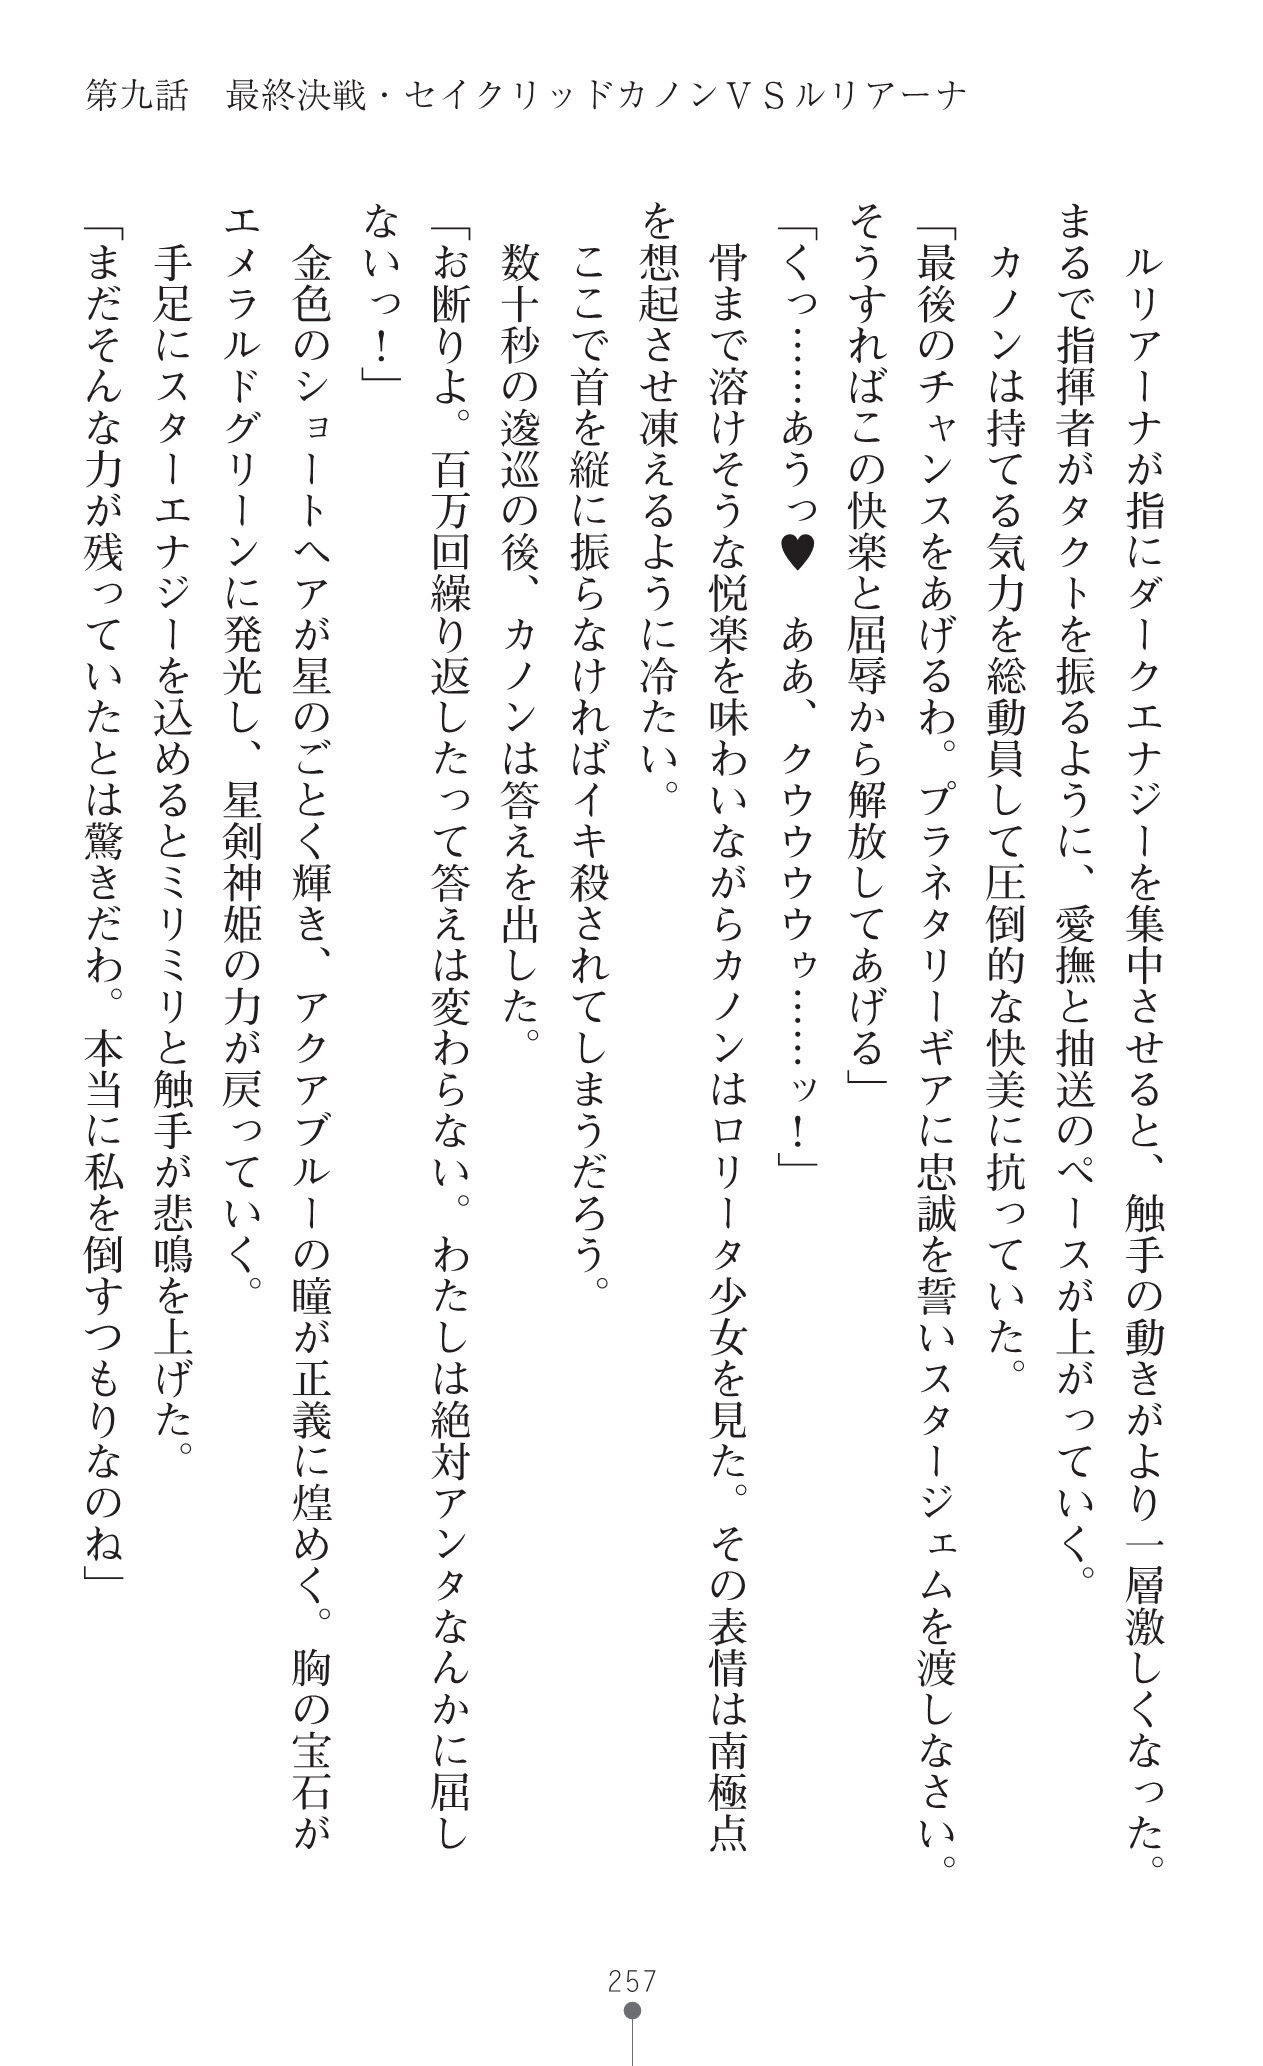 第九話　最終決戦・セイクリッドカノンＶＳルリアーナ
　ルリアーナが指にダークエナジーを集中させると、触手の動きがより一層激しくなった。
まるで指揮者がタクトを振るように、愛撫と抽送のペースが上がっていく。
　カノンは持てる気力を総動員して圧倒的な快美に抗っていた。
「最後のチャンスをあげるわ。プラネタリーギアに忠誠を誓いスタージェムを渡しなさい。
そうすればこの快楽と屈辱から解放してあげる」
「くっ……あうっ♥　ああ、クウウウウゥ……ッ！」
　骨まで溶けそうな悦楽を味わいながらカノンはロリータ少女を見た。その表情は南極点
を想起させ凍えるように冷たい。
　ここで首を縦に振らなければイキ殺されてしまうだろう。
　数十秒の逡巡の後、カノンは答えを出した。
「お断りよ。百万回繰り返したって答えは変わらない。わたしは絶対アンタなんかに屈し
ないっ！」
　金色のショートヘアが星のごとく輝き、アクアブルーの瞳が正義に煌めく。胸の宝石が
エメラルドグリーンに発光し、星剣神姫の力が戻っていく。
　手足にスターエナジーを込めるとミリミリと触手が悲鳴を上げた。
「まだそんな力が残っていたとは驚きだわ。本当に私を倒すつもりなのね」
257